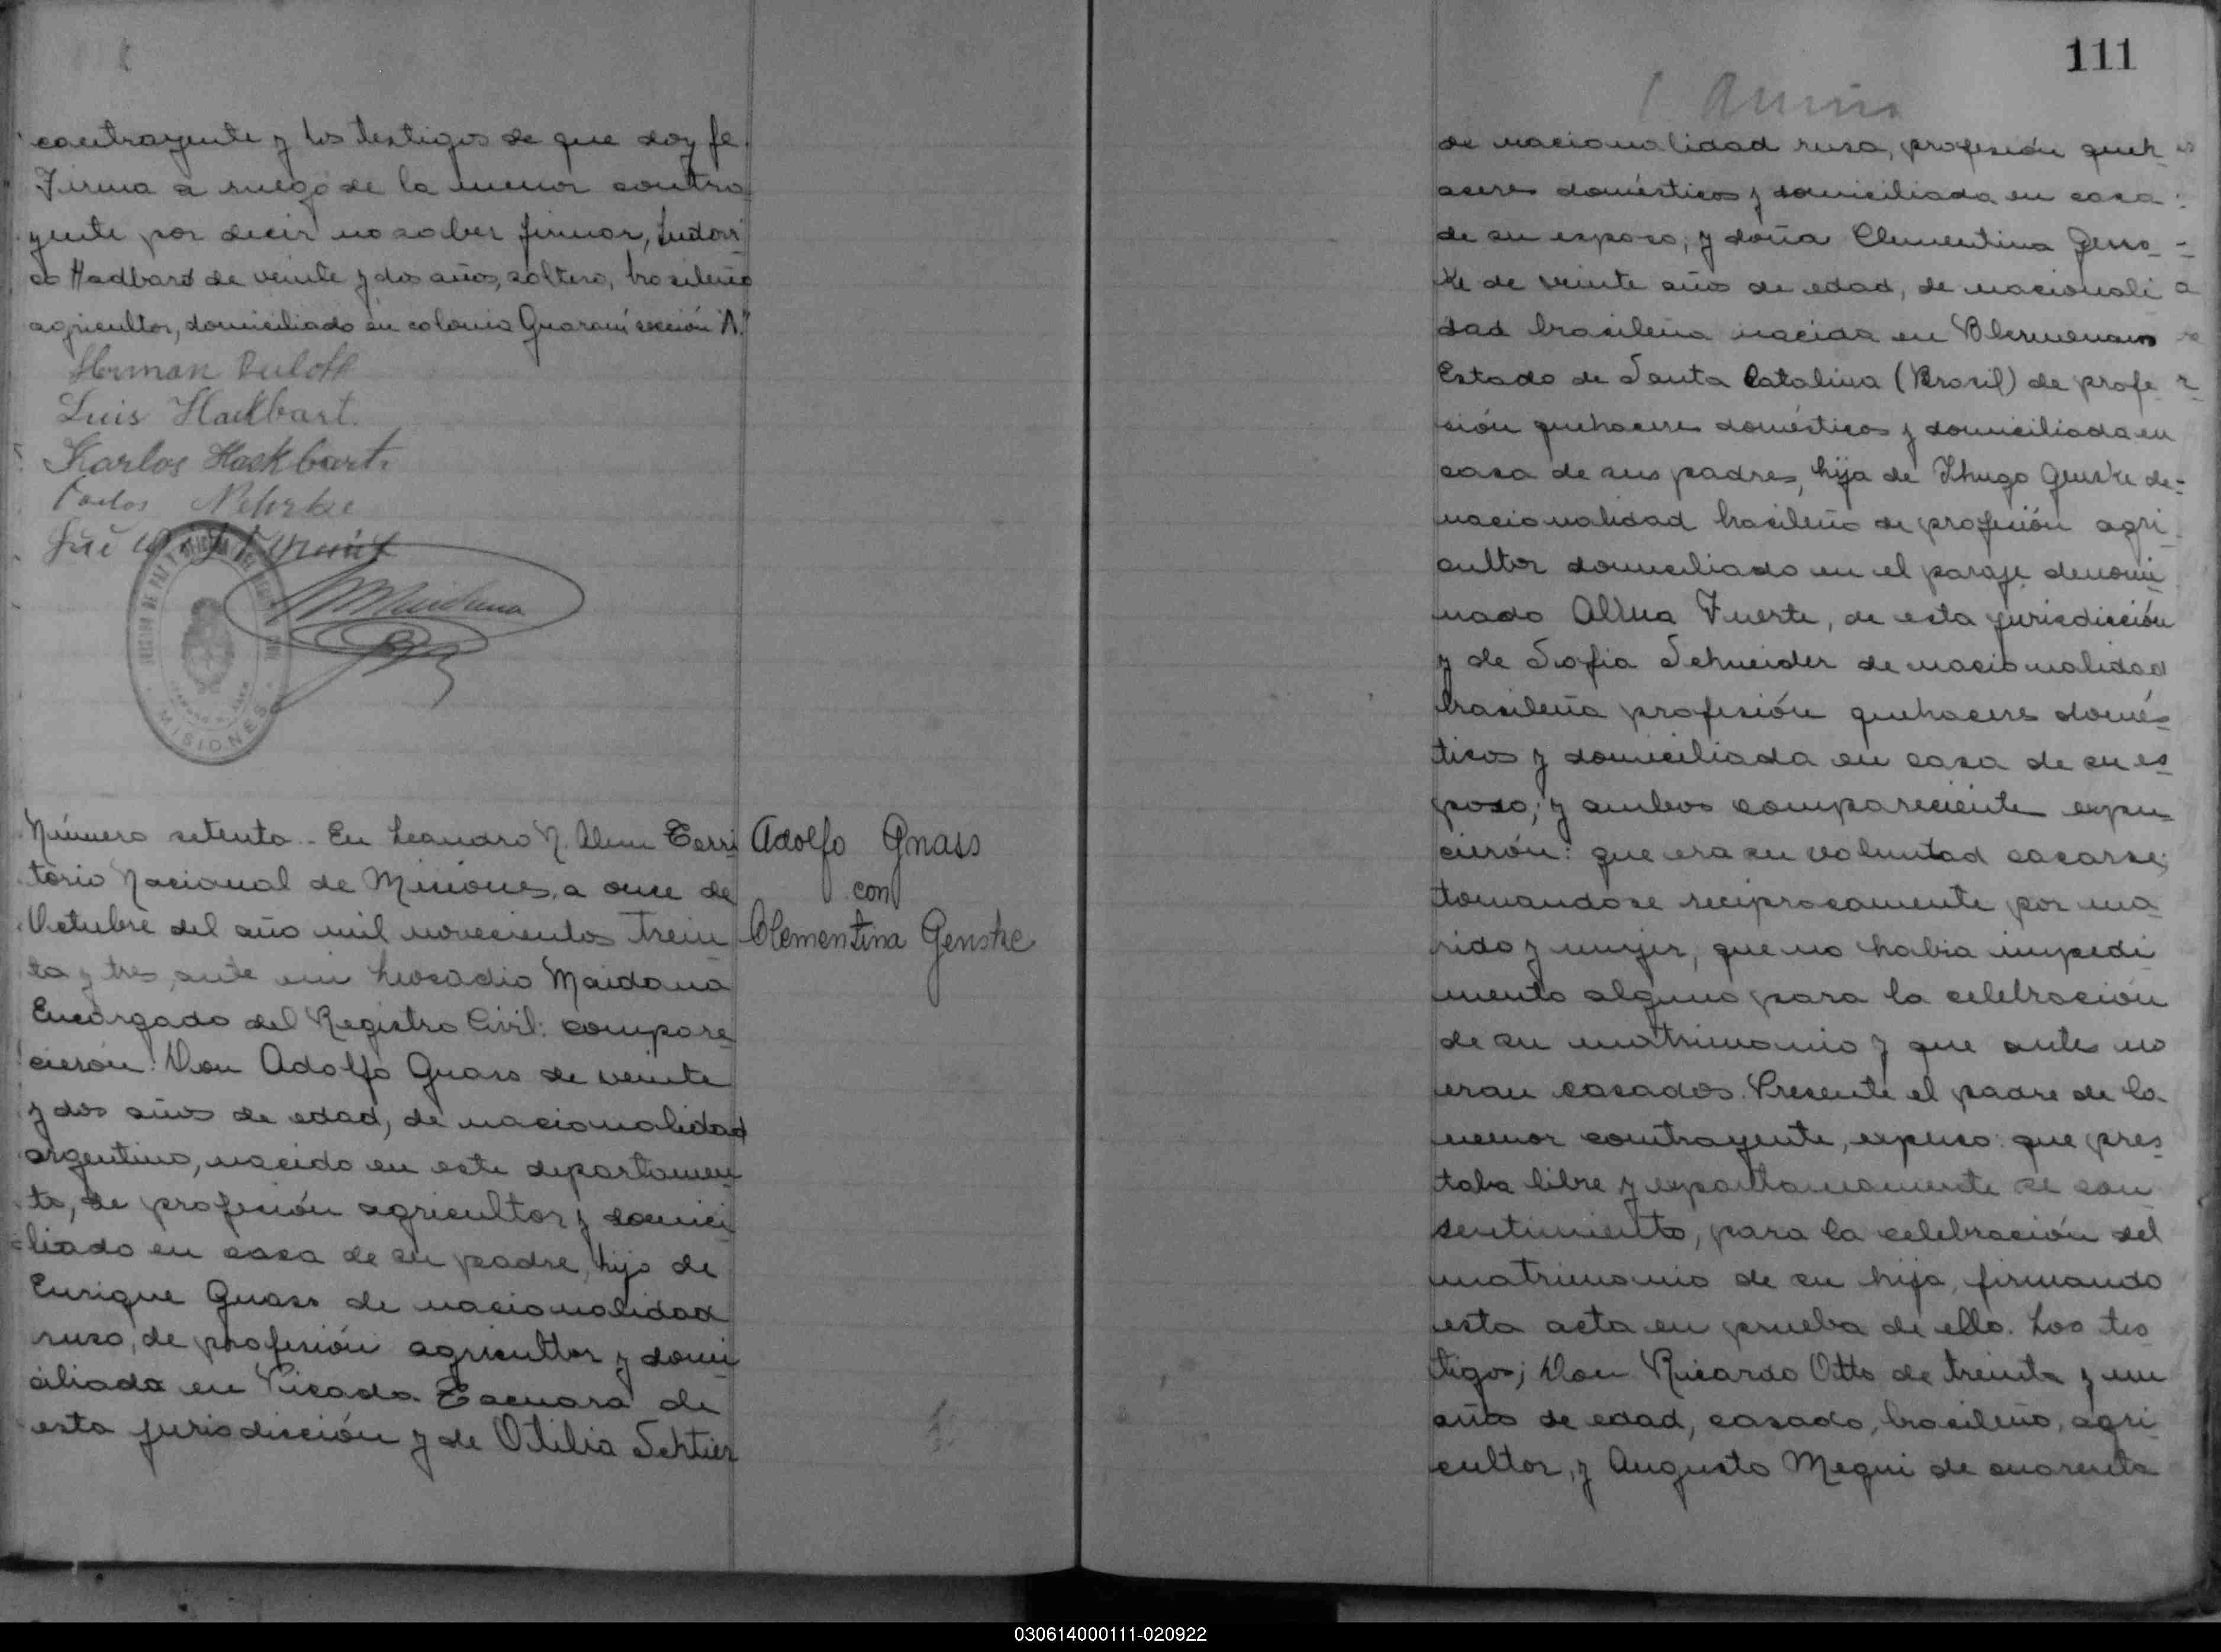 contrayente y los testigos de que doy fe.
Firma a ruego de la menor contra
yente por decir no saber firmar, Ludovi
co Hadbard de veinte y dos años, soltero, brasileño
agricultor, domiciliado en colonia Guaraní sección "A."
Herman Duloff
Luis Hackbart.
Karlos Hackbart.
Carlos Nehrke
MISIONES
Número setenta.- En Leandro N. Alem Terri
torio Nacional de Misiones, a once de
Octubre del año mil novecientos trein
ta y tres, ante mi Leocadio Maidana
Encargado del Registro Civil: compare
cierón: Don Adolfo Gnass de veinte
y dos años de edad, de nacionalidad
argentino, nacido en este departamen
to, de profesión agricultor y domici
liado en casa de su padre, hijo de
Enrique Gnass de nacionalidad
ruso, de profesión agricultor y domi
ciliado en Picada Tacuara de
esta jurisdicción y de Otilia Schtier
Adolfo Gnass
con
Clementina Genske
111
de nacionalidad rusa, profesión queh
aceres domésticos y domiciliada en casa
de su esposo; y doña Clementina Gens
ke de veinte años de edad, de nacionali
dad brasileña nacida en Blermenam
Estado de Santa Catalina (Brasil) de profe
sión quehaceres domésticos y domiciliada en
casa de sus padres, hija de Thugo Genske de
nacionalidad brasileño de profesión agri
cultor domiciliado en el paraje denomi
nado Alma Fuerte, de esta jurisdicción
y de Sofia Schneider de nacionalidad
brasileña profesión quehaceres domés
ticos y domiciliada en casa de su es
poso; y ambos compareciente expu
cierón: que era su voluntad casarse,
tomandose reciprocamente por ma
rido y mujer, que no habia impedi
mento alguno para la celebración
de su matrimonio y que antes no
eran casados. Presente el padre de la
menor contrayente, expuso: que pres
taba libre y espontaneamente se con
sentimiento, para la celebración del
matrimonio de su hija, firmando
esta acta en prueba de ello. Los tes
tigos; Don Ricardo Otto de treinta y un
años de edad, casado, brasileño, agri
cultor, y Augusto Mequi de cuarenta
030614000111-020922